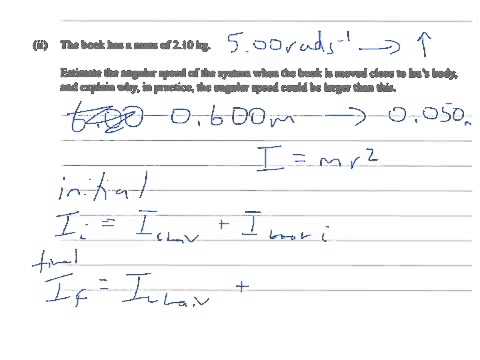 (ii) The book has a mass of 2.10 kg. 5.00 rads⁻¹ → ↑
Estimate the angular speed of the system when the book is moved close to her's body,
and explain why, in practice, the angular speed could be larger than this.
0.600m → 0.050m
I = mr²
initial
I_i = I_chair + I_book i
final
I_f = I_chair +